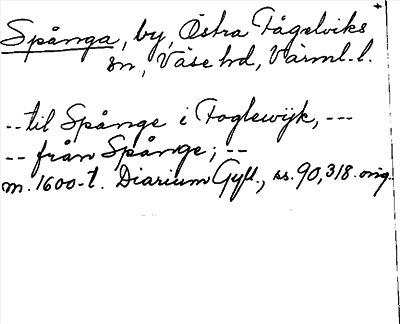 Spånga, by, Östra Fågelviks
sn, Väse hd, Värml. l.
-- til Spånge i Foglewijk, ---
-- från Spånge; --
m. 1600-t. Diarium Gyll., ss. 90, 318. orig.